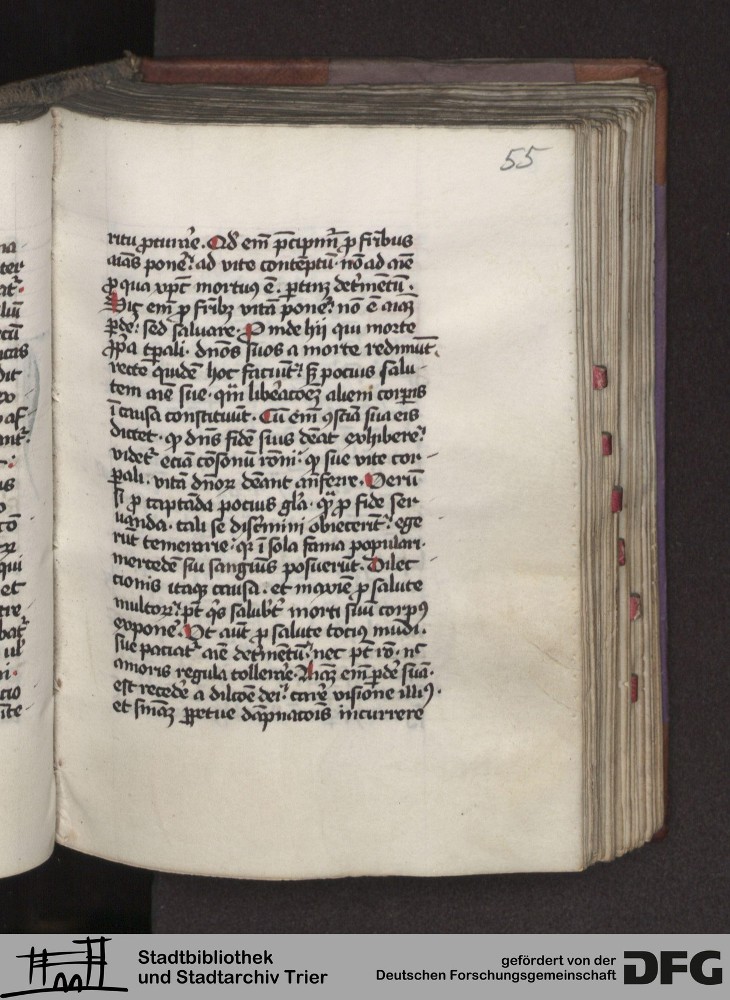 55
ritu ꝓturaꝛe. Qd em̄ p̄cipim̄ ꝓ fr̄ibus
aīas poneꝛ̄: ad vite conteptū nō ad aīe
ꝓ qua xpc̄ mortuꝰ ē. ꝑtinꝫ det͛metū.
em̄ ꝓ fr̄ibꝫ vitā poneꝛ̄: nō ē aīaꝫ
ꝑde: sed saluare. P inde hij qui morte
ꝓpa tp̄ali. dn̄os suos a morte redimūt.
recte quidē hoc faciūt: sꝫ pocius salu
tem aīe sue. qm̄ lib̄eacoēꝫ alieni corꝑis
ī causa constituūt. Cū em̄ ꝯsciā sua eis
dictet. ꝙ dn̄s fidē suis deāt exhibere:
videt͛ eciā cōsonū rōni: ꝙ sue vite cor
ꝑali. vitā dn̄oꝝ deānt anferre. Verū
si ꝓ captāda pocius gl̄a. qꝫ̄ ꝓ fide ser
uanda. tali se disc͛mini obiecerīt: ege
rūt temerarie: qꝛ ī sola fama populari.
mercedē sui sanguīs posuerūt. Dilec
cionis itaqꝫ causa. et
ꝓ salute
multoꝝ: pt̄ qͥs salubr̄t morti suū corpꝰ
exponeꝛ̄. Ut aūt ꝓ salute tociꝰ mūdi.
sue paciat͛ aīe det͛metū: nec pt̄ rō. nc̄
amoris regula tolleraꝛe. Aīaꝫ em̄ ꝑdeꝛ̄ suā.
est recedeꝛ̄ a dilcōe dei: carēꝛ visione illiꝰ.
et snīaꝫ ꝑpetue dāpnacoīs incurrere
Stadtbibliothek
und Stadtarchiv Trier
gefördert von der
Deutschen Forschungsgemeinschaft
DFG